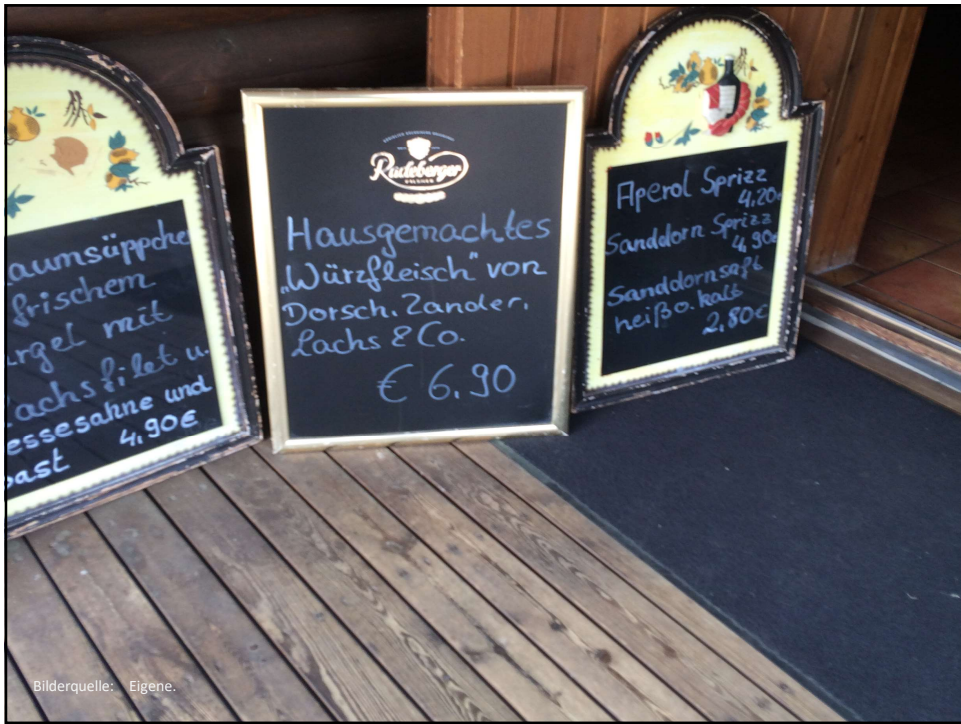 aumsüppche
frischem
rgel mit
achsfilet u.
essesahne und
4,90€
oast
Radeberger
PILSNER
Hausgemachtes
„Würzfleisch" von
Dorsch, Zander,
Lachs & Co.
€ 6,90
Aperol Sprizz
4,20
Sanddorn Sprizz
4,90€
Sanddornsaft
heiß o. kalt
2,80€
Bilderquelle: Eigene.